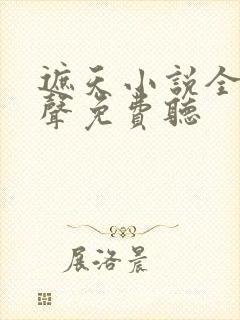 遮天小説全
聲免費聽
展洛晨